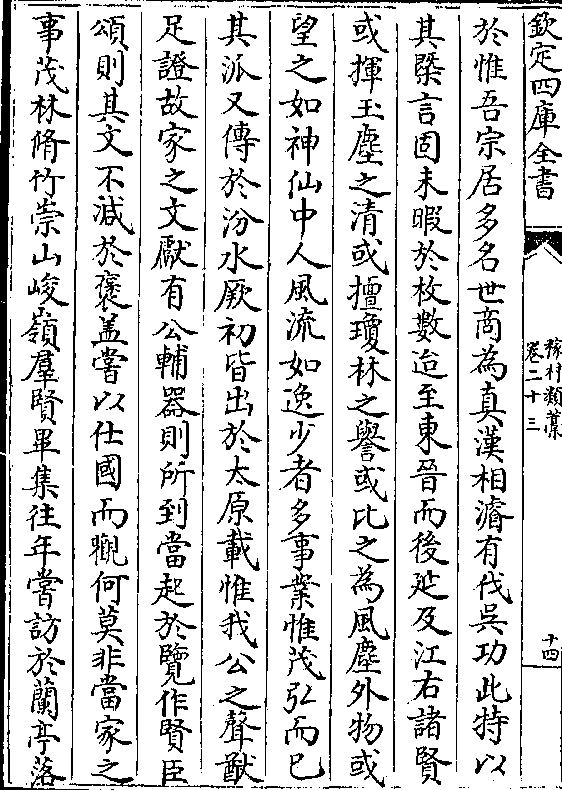 欽定四庫全書
稼村類藁
卷二十三
十四
於惟吾宗居多名世商為真漢相濬有伐呉功此特以
其槩言固未暇於枚數迨至東晉而後延及江右諸賢
或揮玉麈之清或擅瓊林之譽或比之為風塵外物或
望之如神仙中人風流如逸少者多事業惟茂弘而已
其派又傳於汾水厥初皆出於太原載惟我公之聲猷
足證故家之文獻有公輔器則所到當起於覽作賢臣
頌則其文不減於褒盖嘗以仕國而觀何莫非當家之
事茂林脩竹崇山峻嶺羣賢畢集往年嘗訪於蘭亭落